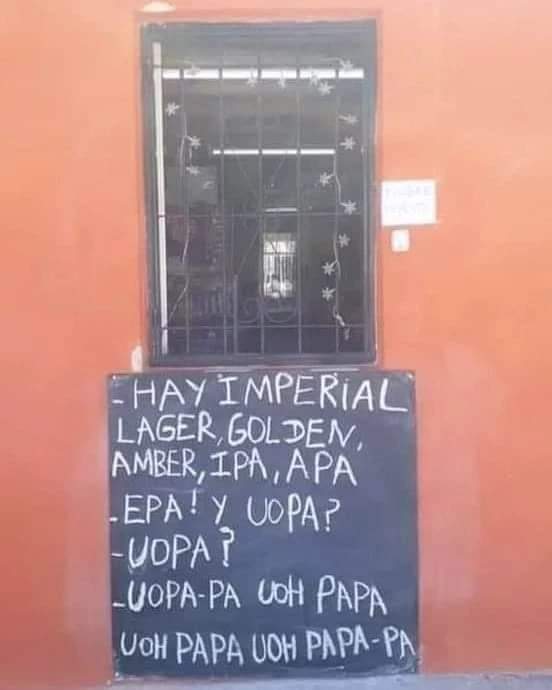 - HAY IMPERIAL
LAGER, GOLDEN,
AMBER, IPA, APA
- EPA! Y UOPA?
- UOPA?
- UOPA-PA UOH PAPA
UOH PAPA UOH PAPA-PA